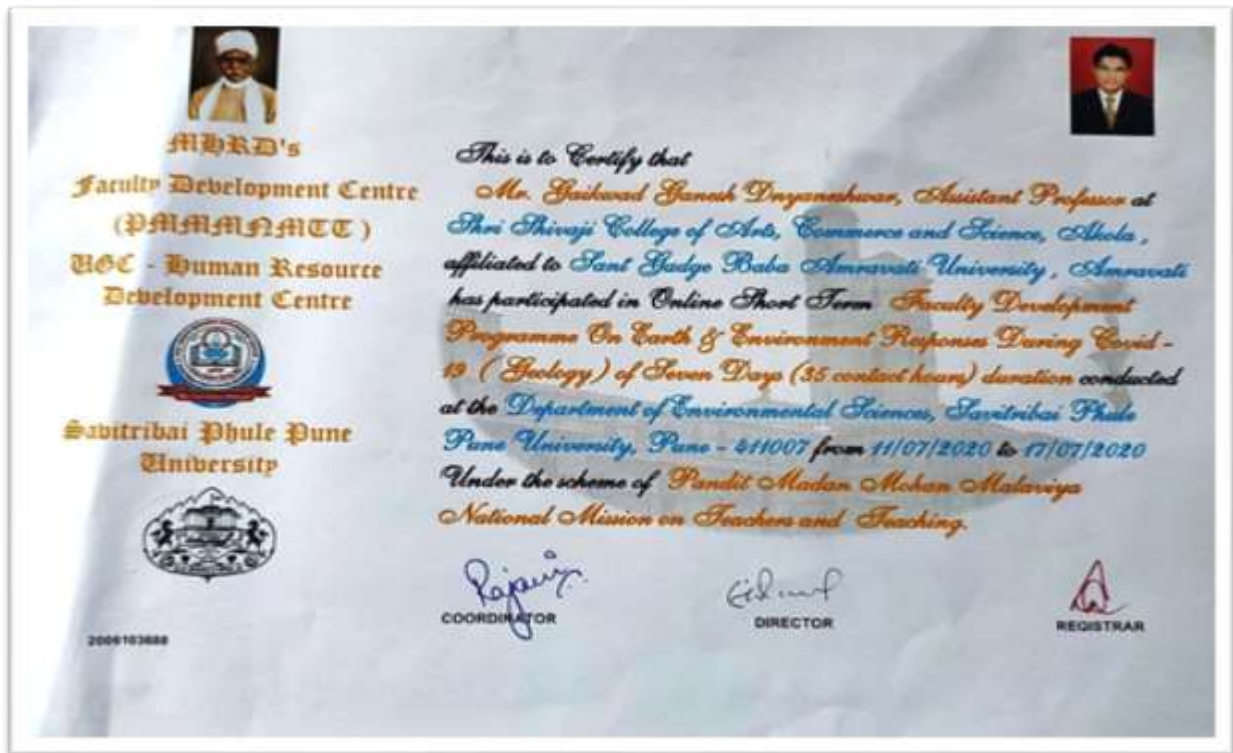 MHRD's
Faculty Development Centre
(PMMMNMTT)
UGC - Human Resource
Development Centre
Savitribai Phule Pune
University
2006103688
This is to Certify that
Mr. Gaikwad Ganesh Dnyaneshwar, Assistant Professor at
Shri Shivaji College of Arts, Commerce and Science, Akola,
affiliated to Sant Gadge Baba Amravati University, Amravati
has participated in Online Short Term Faculty Development
Programme On Earth & Environment Responses During Covid -
19 ( Geology) of Seven Days (35 contact hours) duration conducted
at the Department of Environmental Sciences, Savitribai Phule
Pune University, Pune - 411007 from 11/07/2020 to 17/07/2020
Under the scheme of Pandit Madan Mohan Malaviya
National Mission on Teachers and Teaching.
COORDINATOR
DIRECTOR
REGISTRAR